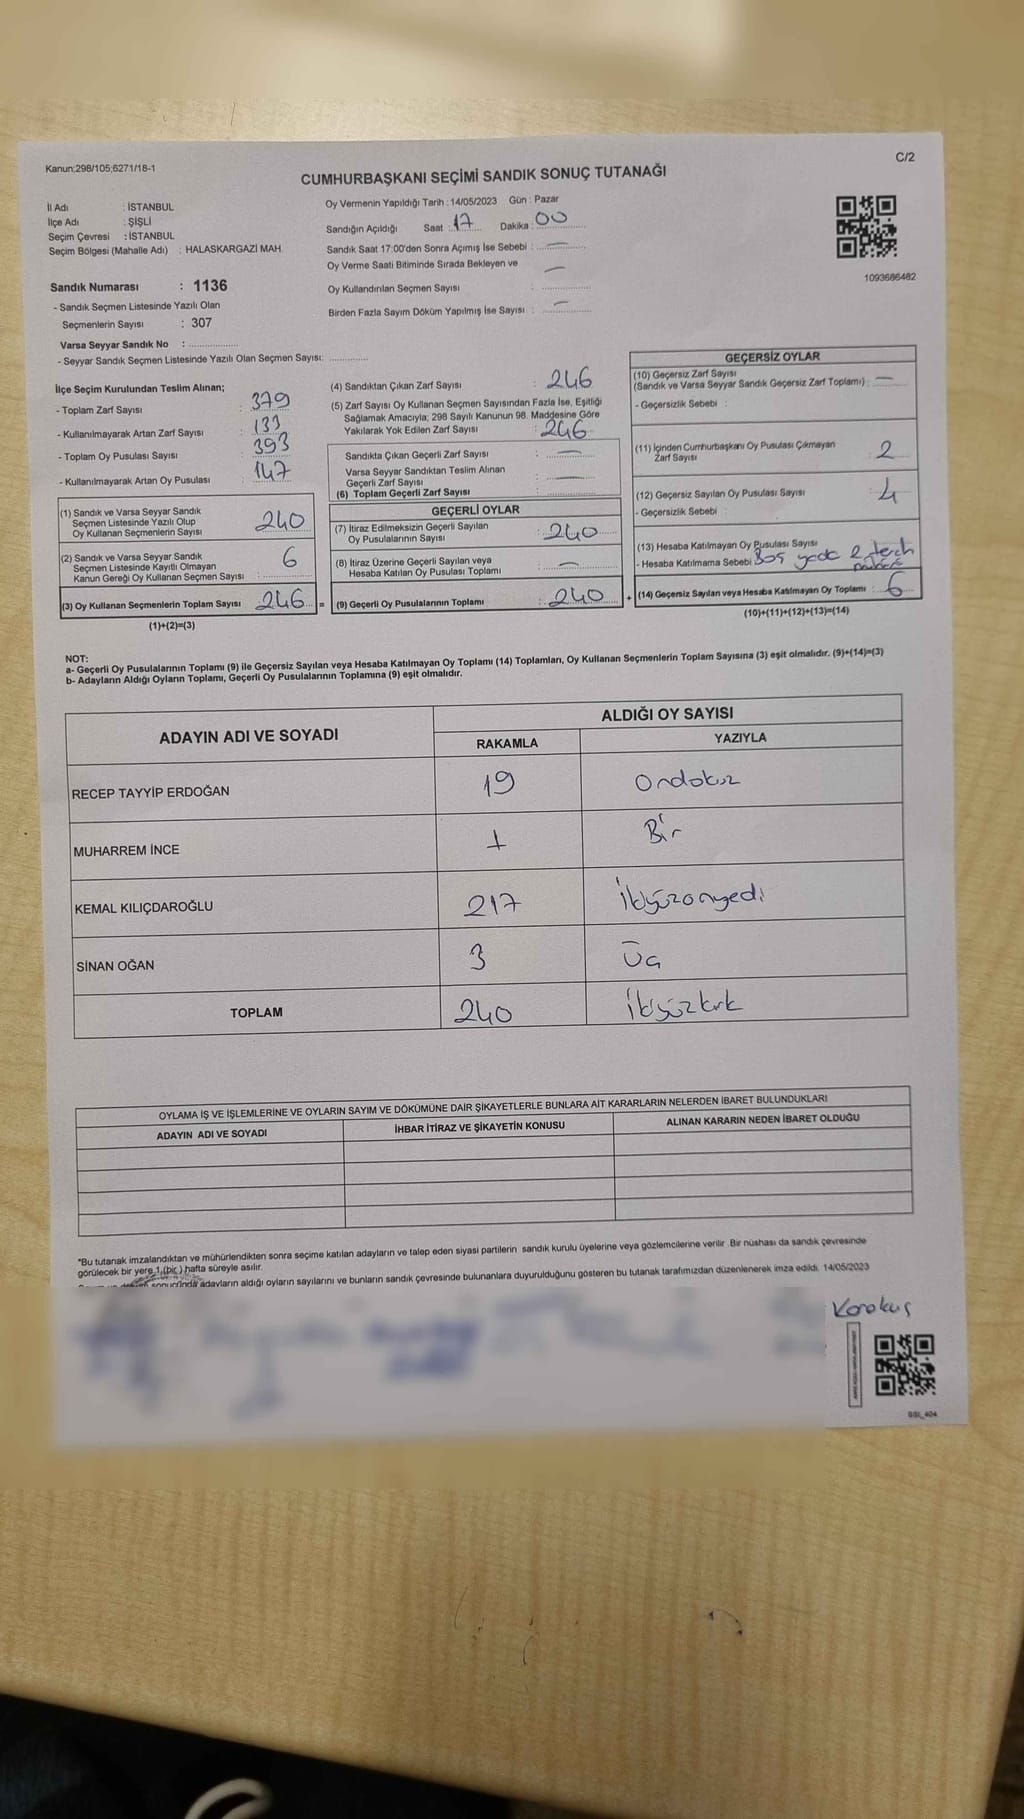 Kanun;298/105;6271/18-1
C/2
CUMHURBAŞKANI SEÇİMİ SANDIK SONUÇ TUTANAĞI
İl Adı : İSTANBUL
İlçe Adı : ŞİŞLİ
Seçim Çevresi : İSTANBUL
Seçim Bölgesi (Mahalle Adı) : HALASKARGAZİ MAH.
Sandık Numarası : 1136
- Sandık Seçmen Listesinde Yazılı Olan
Seçmenlerin Sayısı : 307
Varsa Seyyar Sandık No :
- Seyyar Sandık Seçmen Listesinde Yazılı Olan Seçmen Sayısı:
Oy Vermenin Yapıldığı Tarih : 14/05/2023 Gün : Pazar
Sandığın Açıldığı Saat : 17 Dakika : 00
Sandık Saat 17:00'den Sonra Açımış İse Sebebi : —
Oy Verme Saati Bitiminde Sırada Bekleyen ve
Oy Kullandırılan Seçmen Sayısı : —
Birden Fazla Sayım Döküm Yapılmış İse Sayısı : —
1093686482
İlçe Seçim Kurulundan Teslim Alınan;
- Toplam Zarf Sayısı : 379
- Kullanılmayarak Artan Zarf Sayısı : 133
- Toplam Oy Pusulası Sayısı : 393
- Kullanılmayarak Artan Oy Pusulası : 147
(1) Sandık ve Varsa Seyyar Sandık
Seçmen Listesinde Yazılı Olup
Oy Kullanan Seçmenlerin Sayısı 240
(2) Sandık ve Varsa Seyyar Sandık
Seçmen Listesinde Kayıtlı Olmayan
Kanun Gereği Oy Kullanan Seçmen Sayısı : 6
(3) Oy Kullanan Seçmenlerin Toplam Sayısı 246 =
(1)+(2)=(3)
(4) Sandıktan Çıkan Zarf Sayısı : 246
(5) Zarf Sayısı Oy Kullanan Seçmen Sayısından Fazla İse, Eşitliği
Sağlamak Amacıyla; 298 Sayılı Kanunun 98. Maddesine Göre
Yakılarak Yok Edilen Zarf Sayısı : 246
Sandıkta Çıkan Geçerli Zarf Sayısı : —
Varsa Seyyar Sandıktan Teslim Alınan
Geçerli Zarf Sayısı : —
(6) Toplam Geçerli Zarf Sayısı :
GEÇERLİ OYLAR
(7) İtiraz Edilmeksizin Geçerli Sayılan
Oy Pusulalarının Sayısı : 240
(8) İtiraz Üzerine Geçerli Sayılan veya
Hesaba Katılan Oy Pusulası Toplamı : —
(9) Geçerli Oy Pusulalarının Toplamı : 240 +
GEÇERSİZ OYLAR
(10) Geçersiz Zarf Sayısı
(Sandık ve Varsa Seyyar Sandık Geçersiz Zarf Toplamı) : —
- Geçersizlik Sebebi :
(11) İçinden Cumhurbaşkanı Oy Pusulası Çıkmayan
Zarf Sayısı : 2
(12) Geçersiz Sayılan Oy Pusulası Sayısı : 4
- Geçersizlik Sebebi :
(13) Hesaba Katılmayan Oy Pusulası Sayısı
- Hesaba Katılmama Sebebi Boş yada 2 tercih
(14) Geçersiz Sayılan veya Hesaba Katılmayan Oy Toplamı : 6
(10)+(11)+(12)+(13)=(14)
NOT:
a- Geçerli Oy Pusulalarının Toplamı (9) ile Geçersiz Sayılan veya Hesaba Katılmayan Oy Toplamı (14) Toplamları, Oy Kullanan Seçmenlerin Toplam Sayısına (3) eşit olmalıdır. (9)+(14)=(3)
b- Adayların Aldığı Oyların Toplamı, Geçerli Oy Pusulalarının Toplamına (9) eşit olmalıdır.
ADAYIN ADI VE SOYADI ALDIĞI OY SAYISI
RAKAMLA YAZIYLA
RECEP TAYYİP ERDOĞAN 19 Ondokuz
MUHARREM İNCE 1 Bir
KEMAL KILIÇDAROĞLU 217 İkiyüzonyedi
SİNAN OĞAN 3 Üç
TOPLAM 240 İkiyüzkırk
OYLAMA İŞ VE İŞLEMLERİNE VE OYLARIN SAYIM VE DÖKÜMÜNE DAİR ŞİKAYETLERLE BUNLARA AİT KARARLARIN NELERDEN İBARET BULUNDUKLARI
ADAYIN ADI VE SOYADI İHBAR İTİRAZ VE ŞİKAYETİN KONUSU ALINAN KARARIN NEDEN İBARET OLDUĞU
*Bu tutanak imzalandıktan ve mühürlendikten sonra seçime katılan adayların ve talep eden siyasi partilerin sandık kurulu üyelerine veya gözlemcilerine verilir .Bir nüshası da sandık çevresinde
görülecek bir yere 1 (bir ) hafta süreyle asılır.
sonucunda adayların aldığı oyların sayılarını ve bunların sandık çevresinde bulunanlara duyurulduğunu gösteren bu tutanak tarafımızdan düzenlenerek imza edildi. 14/05/2023
Karakuş